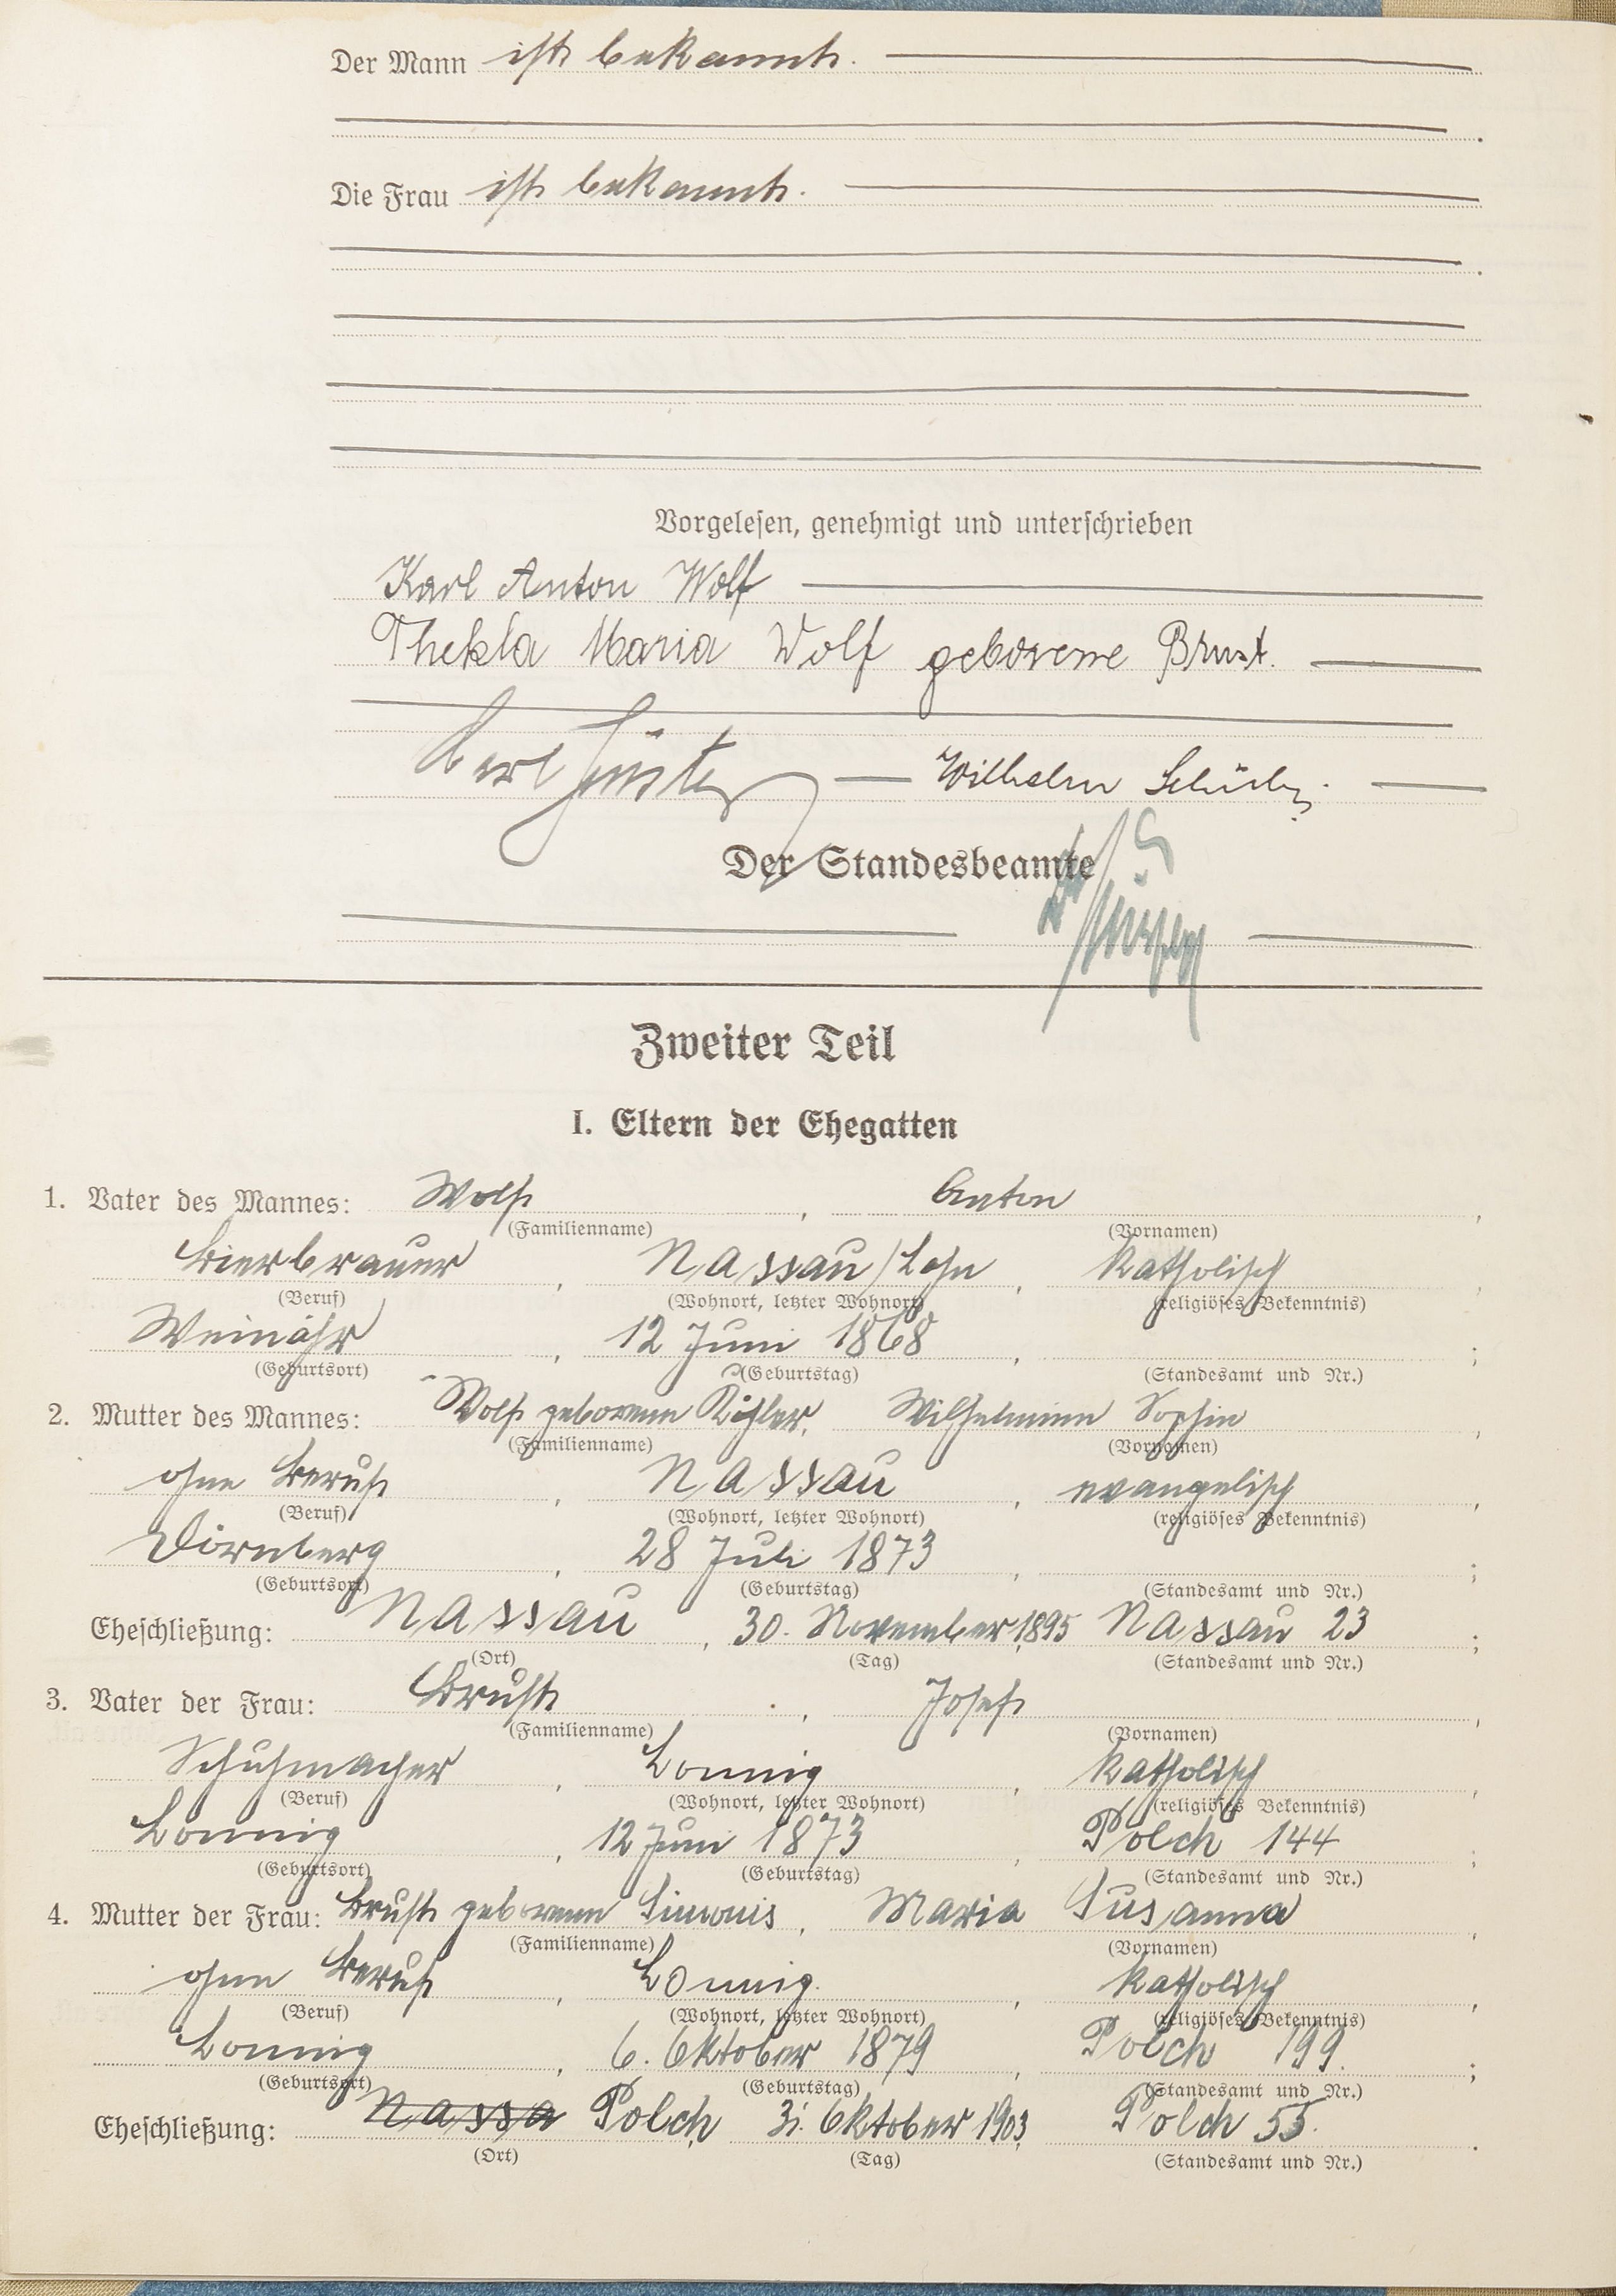 Der Mann ist bekannt.
Die Frau ist bekannt.
Vorgelesen, genehmigt und unterschrieben
Karl Anton Wolf
Thekla Maria Wolf geborene Brust.
Carl Wilhelm
Der Standesbeamte
Zweiter Teil
I. Eltern der Ehegatten
1. Vater des Mannes: Wolf, Anton,
(Familienname) (Vornamen)
Bierbrauer, Nassau/Lahn, katholisch,
(Beruf) (Wohnort, letzter Wohnort) (religiöses Bekenntnis)
Weinähr, 12 Juni 1868,;
(Geburtsort) (Geburtstag) (Standesamt und Nr.)
2. Mutter des Mannes: Wolf geborene Köhler, Wilhelmine Sophie,
(Familienname) (Vornamen)
ohne Beruf, Nassau, evangelisch,
(Beruf) (Wohnort, letzter Wohnort) (religiöses Bekenntnis)
Dörnberg, 28 Juli 1873,;
(Geburtsort) (Geburtstag) (Standesamt und Nr.)
Eheschließung: Nassau, 30. November, 1895 Nassau 23;
(Ort) (Tag) (Standesamt und Nr.)
3. Vater der Frau: Brust, Josef,
(Familienname) (Vornamen)
Schuhmacher, Lonnig, katholisch,
(Beruf) (Wohnort, letzter Wohnort) (religiöses Bekenntnis)
Lonnig, 12 Juni 1873, Polch 144;
(Geburtsort) (Geburtstag) (Standesamt und Nr.)
4. Mutter der Frau: Brust geborene Simonis, Maria Susanna,
(Familienname) (Vornamen)
ohne Beruf, Lonnig, katholisch,
(Beruf) (Wohnort, letzter Wohnort) (religiöses Bekenntnis)
Lonnig, 6. Oktober 1879, Polch 199;
(Geburtsort) (Geburtstag) (Standesamt und Nr.)
Eheschließung: Nassa Polch, 31. Oktober 1903, Polch 55.
(Ort) (Tag) (Standesamt und Nr.)